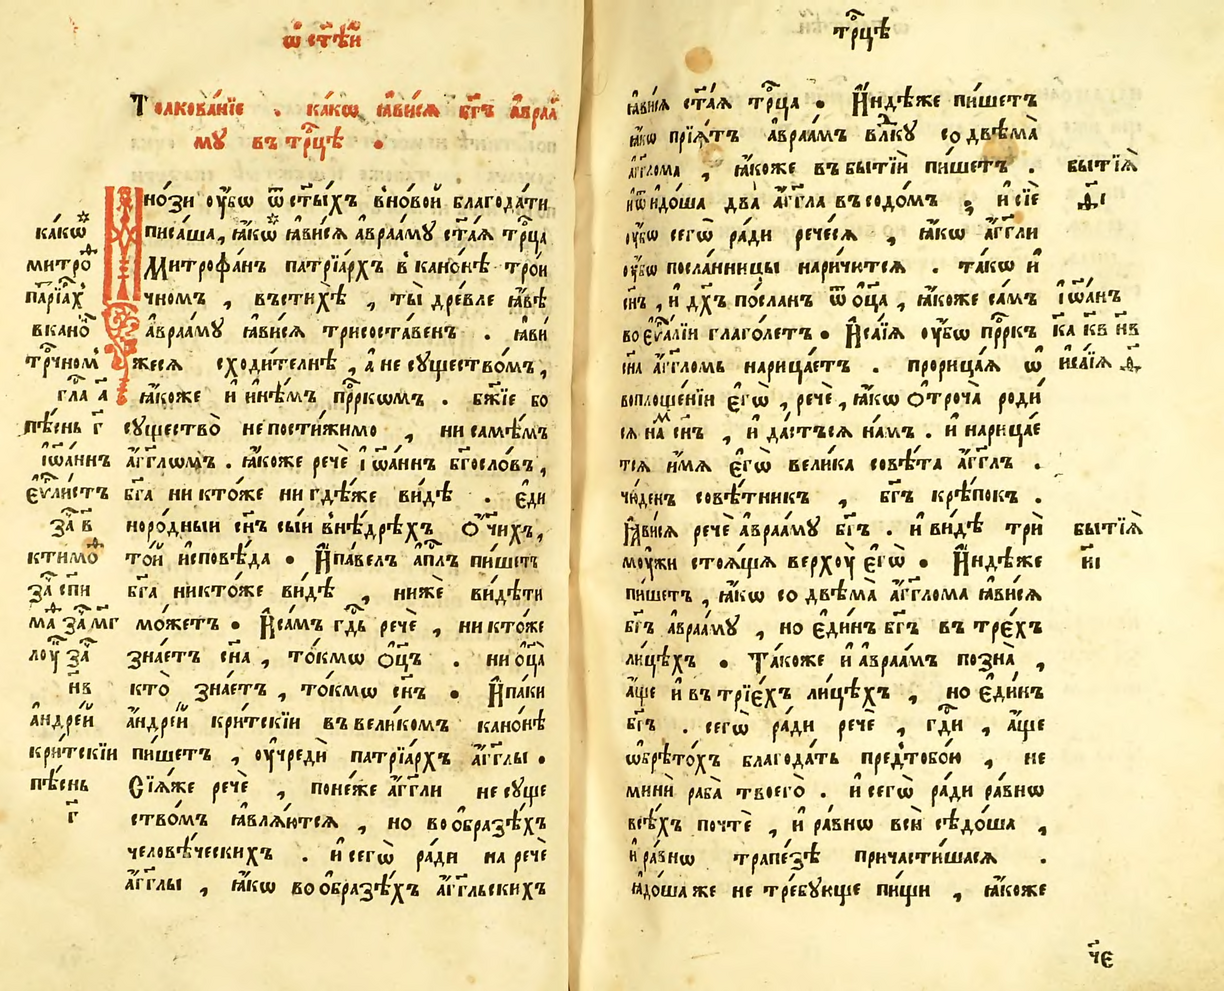 Ѡ҆ ст҃ѣи
Толкова́нїе . ка́кѡ ꙗ҆ви́сѧ бг҃ъ а҆враа́
му въ трⷪ҇цѣ .
Мно́зи ѹ҆́бѡ ѿ ст҃ы́хъ в̾но́вои благода́ти
писа́ша, ꙗ҆́кѡ ꙗ҆ви́сѧ а҆враа́му ст҃а́ѧ трⷪ҇ца
Митрофа́нъ патрїа́рхъ в̾ кано́нѣ трои
чномъ , въ сти́хѣ , ты̀ дре́вле ꙗ҆́вѣ
а҆враа́му ꙗ҆ви́сѧ трисоста́венъ . ꙗ҆ви́
жесѧ сходи́телнѣ , а҆ не сѹщество́мъ ,
ꙗ҆́коже и҆ и҆нѣ́мъ прⷪ҇ркѡмъ . бж҃їе бо
сѹщество̀ не пости́жимо , ни самѣ́мъ
а҆́гг҃лѡмъ . ꙗ҆́коже речѐ і҆ѡа́ннъ бг҃осло́въ ,
бг҃а никто́же нигдѣ́же ви́дѣ . є҆ди
норо́дныи сн҃ъ сы́и в̾нѣ́дрѣхъ ѻ҆́ч҃ихъ ,
то́и и҆сповѣ́да . И҆ па́велъ а҆пⷭ҇лъ пи́шетъ
бг҃а никто́же ви́дѣ , нижѐ ви́дѣти
мо́жетъ . И҆ са́мъ гдⷭ҇ь речѐ , никто́же
зна́етъ сн҃а , то́кмѡ ѻ҆ц҃ъ . ни ѻ҆ц҃а̀
кто̀ зна́етъ , то́кмѡ сн҃ъ . И҆ па́ки
а҆ндре́и кри́тскїи въ вели́комъ кано́нѣ
пи́шетъ , ѹ҆чредѝ патрїа́рхъ а҆́гг҃лы .
Сїѧ́же речѐ , поне́же а҆́гг҃ли не сѹще
ство́мъ ꙗ҆влѧ́ютсѧ , но во ѻ҆бразѣ́хъ
человѣ́ческихъ . и҆ сегѡ̀ ра́ди наречѐ
а҆́гг҃лы , ꙗ҆́кѡ во ѻ҆бразѣ́хъ а҆́гг҃льскихъ
ка́кѡ
митроⷴ
патрїа́рⷯ
в канѡⷩ
трⷪ҇чном
гла́ а҃
пѣ́снь г҃
і҆ѡа́ннъ
є҆ѵⷢ҇ли́стъ
за́ч в҃
к тимоⷴ
а҆ндре́и
кри́тскїи
пѣ́снь
г҃
трⷪ҇цѣ
ꙗ҆ви́сѧ ст҃а́ѧ трⷪ҇ца . И҆ндѣ́же пи́шетъ
ꙗ҆́кѡ прїѧ́тъ а҆враа́мъ влⷣку со двѣма̀
а҆́гг҃лома , ꙗ҆́коже въ бытїѝ пи́шетъ .
и҆ ѿидо́ша два̀ а҆́гг҃ла въ содо́мъ ; и҆ сїѐ
ѹ҆́бѡ сегѡ̀ ра́ди рече́сѧ , ꙗ҆́кѡ а҆́гг҃ли
ѹ҆́бѡ посла́нницы нари́чютсѧ . та́кѡ и҆
сн҃ъ , и҆ дх҃ъ по́сланъ ѿ ѻ҆ц҃а , ꙗ҆́коже са́мъ
во є҆ѵⷢ҇а́лїи глаго́летъ . И҆са́їѧ ѹ҆́бѡ прⷪ҇ркъ
сн҃а а҆́гг҃ломь нарица́етъ . прорица́ѧ ѡ҆
воплоще́нїи є҆гѡ̀ , речѐ , ꙗ҆́кѡ Ѻ҆троча̀ роди́
сѧ на́м сн҃ъ , и҆ да́стъсѧ на́мъ . и҆ нарица́е
тсѧ и҆́мѧ є҆гѡ̀ вели́ка совѣ́та а҆́гг҃лъ .
чи́денъ совѣ́тникъ , бг҃ъ крѣ́покъ .
Ꙗ҆ви́сѧ речѐ а҆враа́му бг҃ъ . и҆ ви́дѣ трѝ
мо́ужи стоѧ́щѧ верхоу̀ є҆гѡ̀ . И҆ндѣ́же
пи́шетъ , ꙗ҆́кѡ со двѣма̀ а҆́гг҃лома ꙗ҆ви́сѧ
бг҃ъ а҆враа́му , но є҆ди́нъ бг҃ъ въ трє́хъ
ли́цѣхъ . Та́коже и҆ а҆враа́мъ позна̀ ,
а҆́ще и҆ въ трїє́хъ ли́цѣхъ , но є҆ди́нъ
бг҃ъ . сегѡ̀ ра́ди речѐ , гдⷭ҇и , а҆́ще
ѡ҆брѣто́хъ благода́ть пред̾тобо́ю , не
минѝ раба̀ твоегѡ̀ . и҆ сегѡ̀ ра́ди ра́внѡ
всѣ́хъ почтѐ , и҆ ра́внѡ всѝ сѣдо́ша ,
и҆ ра́внѡ трапе́зѣ причасти́шасѧ .
ꙗ҆до́ша же не тре́бующе пи́щи , ꙗ҆́коже
бытїѧ̀
і҆ѡа́нъ
к҃а к҃в н҃в
и҆са́їѧ
бытїѧ̀
и҃і
ч҃є